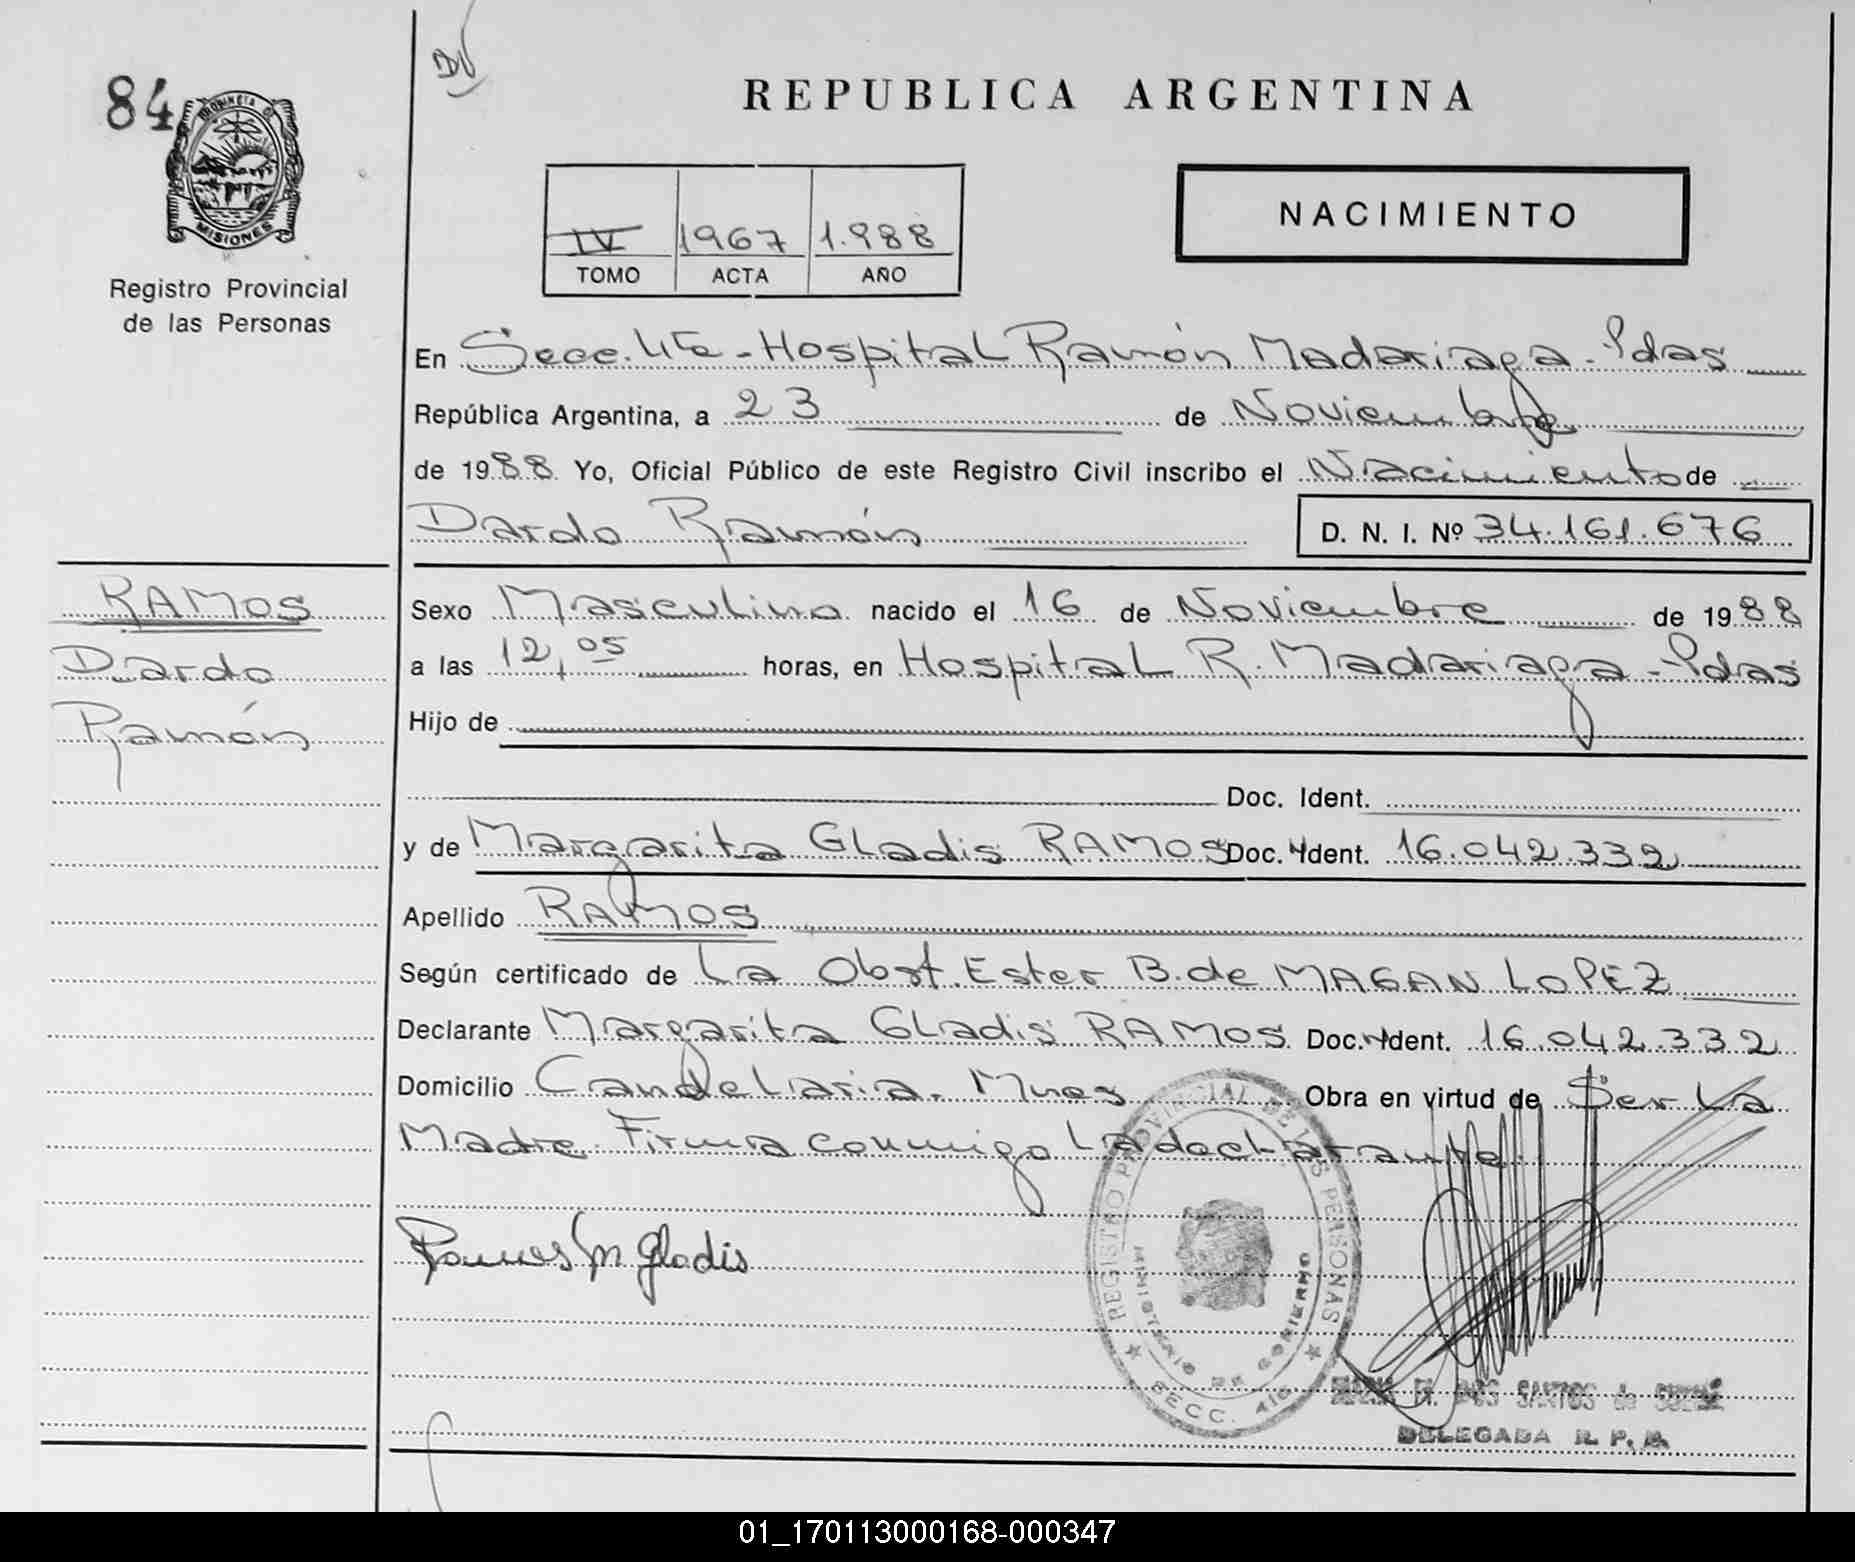 84
REPUBLICA ARGENTINA
PROVINCIA DE
MISIONES
Registro Provincial
de las Personas
IV 1967 1.988
TOMO ACTA AÑO
NACIMIENTO
En Secc. 4ta - Hospital Ramón Madariaga - Pdas
República Argentina, a 23 de Noviembre
de 1988 Yo, Oficial Público de este Registro Civil inscribo el Nacimiento de
Dardo Ramón D. N. I. Nº 34.161.676
RAMOS
Dardo
Ramón
Sexo Masculino nacido el 16 de Noviembre de 1988
a las 12,05 horas, en Hospital R. Madariaga - Pdas
Hijo de
Doc. Ident.
y de Margarita Gladis RAMOS Doc. Ident. 16.042.332
Apellido RAMOS
Según certificado de La Obst. Ester B. de MAGAN LOPEZ
Declarante Margarita Gladis RAMOS Doc. Ident. 16.042.332
Domicilio Candelaria. Mnes Obra en virtud de Ser La
Madre. Firma conmigo La declarante.
Ramos M Gladis
REGISTRO PROVINCIAL DE LAS PERSONAS
MINISTERIO DE GOBIERNO
SECC. 4
DOS SANTOS de
DELEGADA R. P. P.
01_170113000168-000347